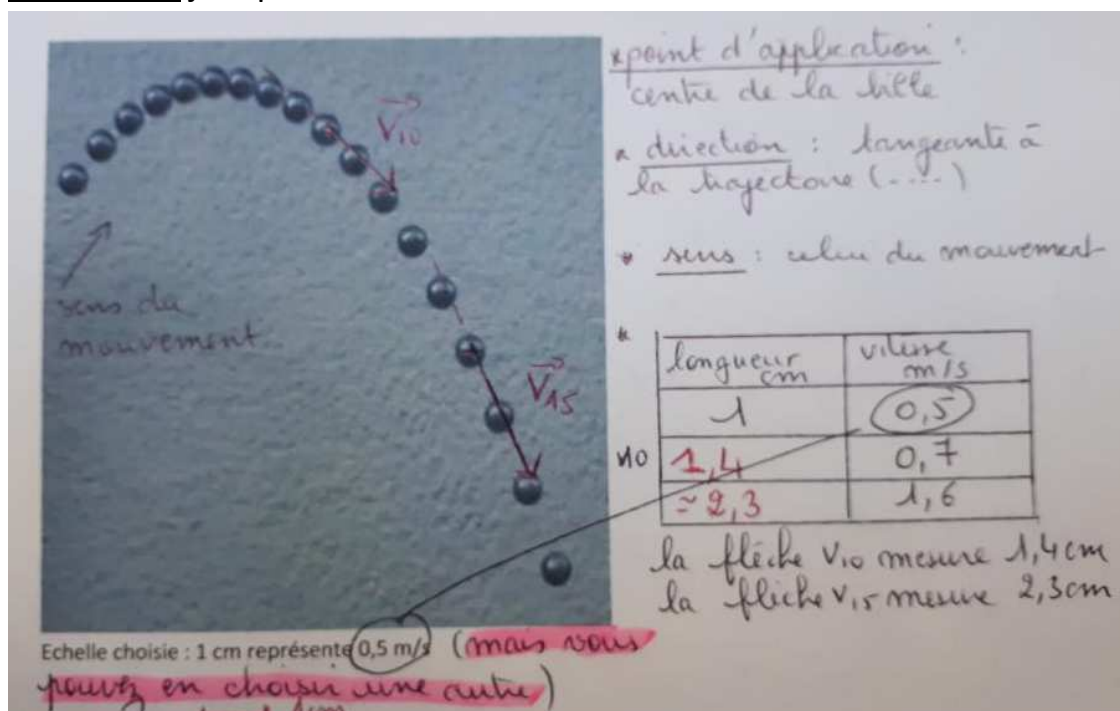 V10
sens du
mouvement
V15
*point d'application :
centre de la bille
* direction : tangeante à
la trajectoire (.....)
* sens : celui du mouvement
*
longueur cm vitesse m/s
1 0,5
10 1,4 0,7
≃ 2,3 1,6
la flèche V10 mesure 1,4 cm
la flèche V15 mesure 2,3 cm
Echelle choisie : 1 cm représente 0,5 m/s (mais vous
pouvez en choisir une autre)